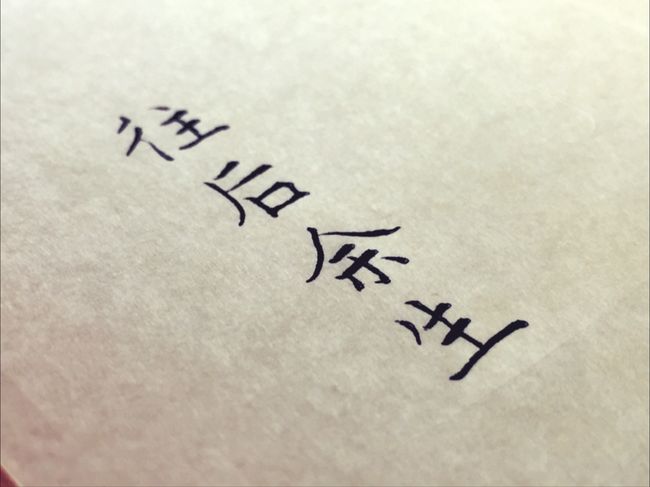 往后余生